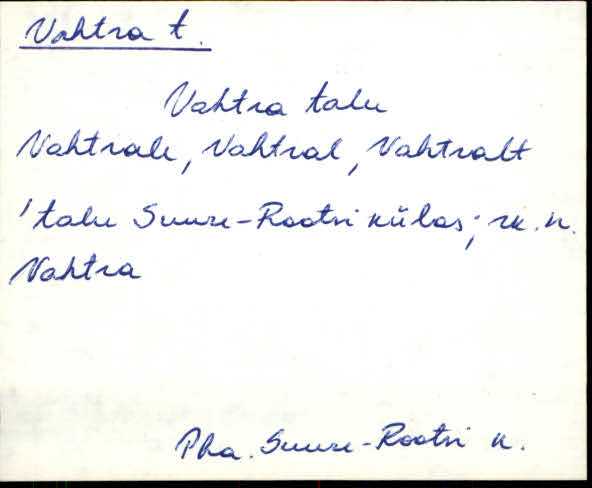 Vahtra t.
Vahtra talu
Vahtrale, Vahtral, Vahtralt
'talu Suure-Rootsi külas; rk. n.
Vahtra
Pha. Suure-Rootsi k.